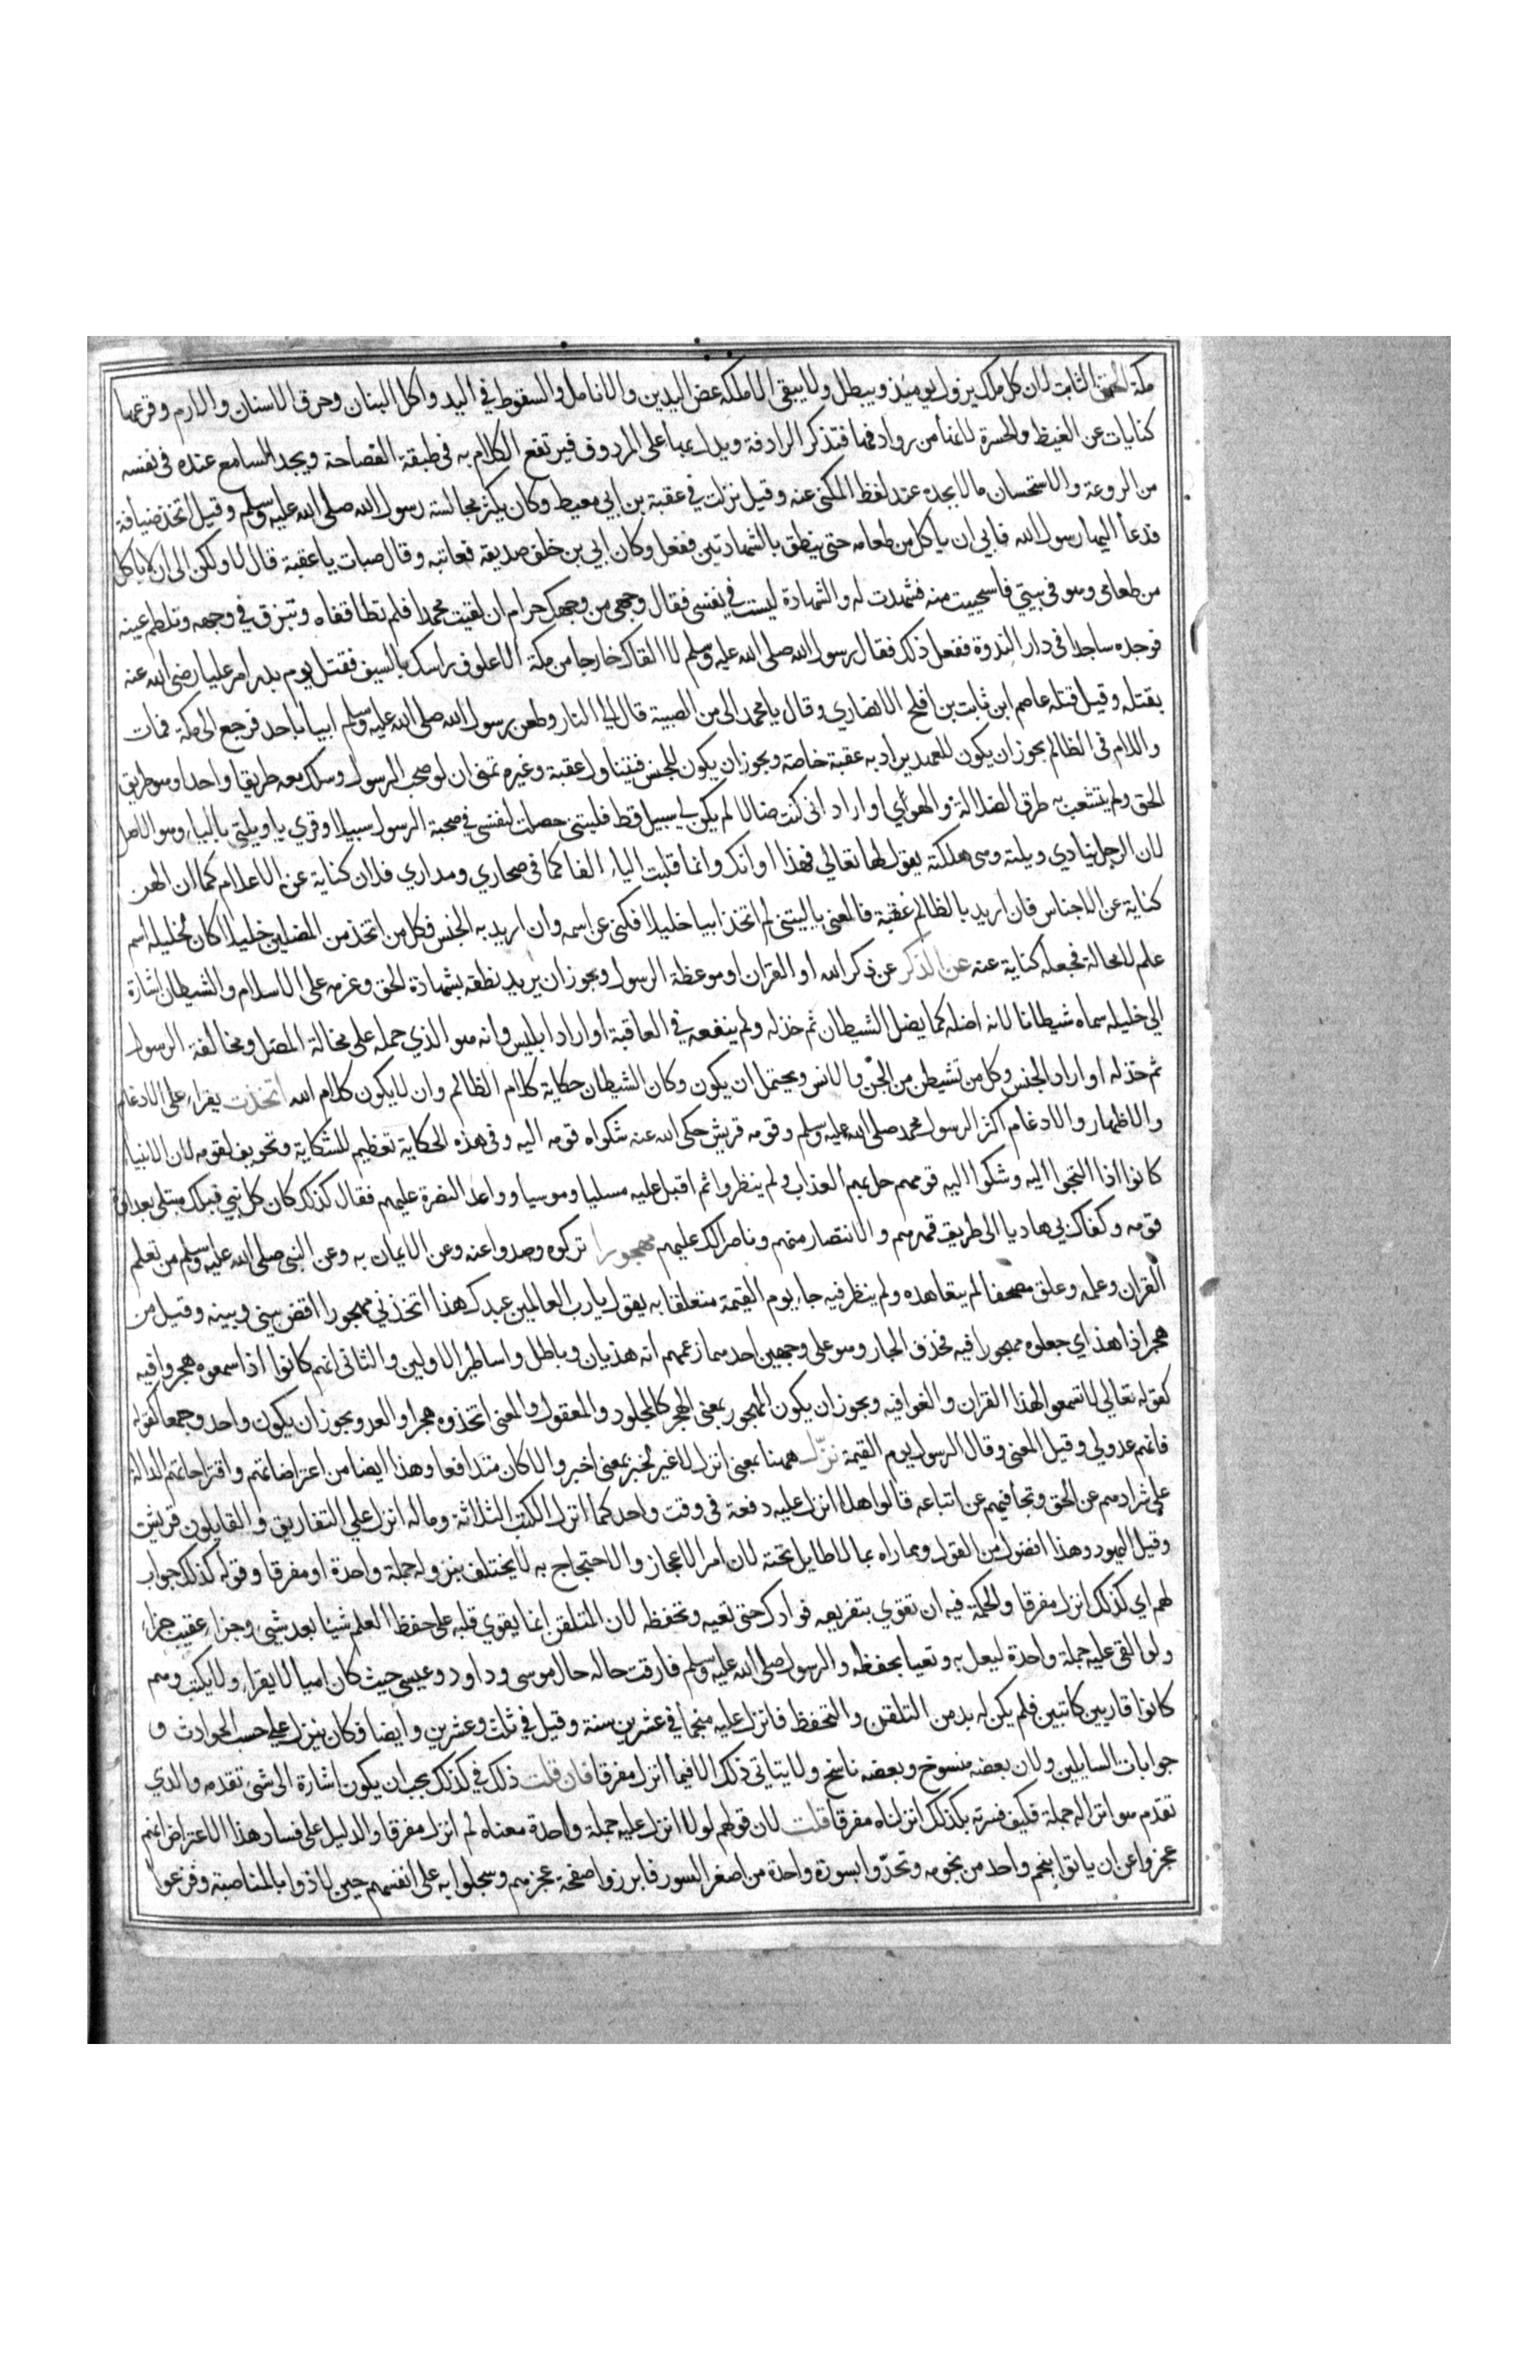 مكة الحق الثابت لان كل ملك يزول يوميذ ويبطل ولا يبقى الا ملكه عض اليدين والانامل والسقوط في اليد واكل البنان وحرق الاسنان والارم وقرعها
كنايات عن الغيظ والحسرة لانها من روادفها فتذكر الرادفة ويدل بها على المردوف فيرتفع الكلام به في طبقة الفصاحة ويجد السامع عنده في نفسه
من الروعة والاستحسان ما لا يجده عند لفظ المكنى عنه وقيل نزلت في عقبة بن ابي معيط وكان يكثر مجالسة رسول الله صلى الله عليه وسلم وقيل اتخذ ضيافة
فدعا اليها رسول الله فابى ان ياكل من طعامه حتى ينطق بالشهادتين ففعل وكان ابي بن خلف صديقه فعاتبه وقال صبات يا عقبة قال لا ولكن الى ان لا ياكل
من طعامي وهو في بيتي فاستحييت منه فشهدت له والشهادة ليست في نفسي فقال وجهي من وجهك حرام ان لقيت محمدا فلم تطا قفاه وتبزق في وجهه وتلطم عينه
فوجده ساجدا في دار الندوة ففعل ذلك فقال رسول الله صلى الله عليه وسلم لا القاك خارجا من مكة الا علوت راسك بالسيف فقتل يوم بدر امر عليا رضي الله عنه
بقتله وقيل قتله عاصم ابن ثابت بن افلح الانصاري وقال يا محمد الى من الصبية قال الى النار وطعن رسول الله صلى الله عليه وسلم ابيا باحد فرجع الى مكة فمات
واللام في الظالم يجوز ان يكون للعهد يراد به عقبة خاصة ويجوز ان يكون للجنس فيتناول عقبة وغيره تمنى ان لو صحب الرسول وسلك معه طريقا واحدا وهو طريق
الحق ولم يتشعب به طرق الضلالة والهوى او اراد اني كنت ضالا لم يكن لي سبيل قط فليتني حصلت لنفسي في صحبة الرسول سبيلا وقري يا ويلتي بالياء وهو الاصل
لان الرجل ينادي ويلته وهي هلكته يقول لها تعالي فهذا اوانك وانما قلبت الياء الفا كما في صحاري ومداري فلان كناية عن الاعلام كما ان الهن
كناية عن الاجناس فان اريد بالظالم عقبة فالمعنى يا ليتني لم اتخذ ابيا خليلا فكنى عن اسمه وان اريد به الجنس فكل من اتخذ من المضلين خليلا كان لخليله اسم
علم لا محالة فجعله كناية عنه عن الذكر عن ذكر الله او القران او موعظة الرسول ويجوز ان يريد نطقه بشهادة الحق وعزمه على الاسلام والشيطان اشارة
الى خليله سماه شيطانا لانه اضله كما يضل الشيطان ثم خذله ولم ينفعه في العاقبة او اراد ابليس وانه هو الذي حمله على مخالة المضل ومخالفة الرسول
ثم خذله او اراد الجنس وكل من تشيطن من الجن والانس ويحتمل ان يكون وكان الشيطان حكاية كلام الظالم وان لا يكون كلام الله اتخذت يقراء على الادغام
والاظهار والادغام اكثر الرسول محمد صلى الله عليه وسلم وقومه قريش حكى الله عنه شكواه قومه اليه وفي هذه الحكاية تعظيم للشكاية وتخويف لقومه لان الانبياء
كانوا اذا التجوا اليه وشكوا اليه قومهم حل بهم العذاب ولم ينظروا ثم اقبل عليه مسليا وموسيا وواعدا النصرة عليهم فقال كذلك كان كل نبي قبلك مبتلى بعداوة
قومه وكفاك بي هاديا الى طريق قهرهم والانتصار منهم وناصرا لك عليهم مهجورا تركوه وصدوا عنه وعن الايمان به وعن النبي صلى الله عليه وسلم من تعلم
القران وعلمه وعلق مصحفا لم يتعاهده ولم ينظر فيه جاء يوم القيمة متعلقا به يقول يا رب العالمين عبدك هذا اتخذني مهجورا اقض بيني وبينه وقيل من
هجر اذا هذا اي جعلوه مهجورا فيه فحذف الجار وهو على وجهين احدهما زعمهم انه هذيان وباطل واساطير الاولين والثاني انهم كانوا اذا سمعوه هجروا فيه
كقوله تعالى لا تسمعوا لهذا القران والغوا فيه ويجوز ان يكون المهجور بمعنى الهجر كالمجلود والمعقول والمعنى اتخذوه هجرا والعدو يجوز ان يكون واحد وجمعا كقوله
فانهم عدو لي وقيل المعنى وقال الرسول يوم القيمة نزّل ههنا بمعنى انزل لا غير كخبر بمعنى اخبر والا كان متدافعا وهذا ايضا من اعتراضاتهم واقتراحاتهم الدالة
على شرادهم عن الحق وتجافيهم عن اتباعه قالوا هلا انزل عليه دفعة في وقت واحد كما انزل الكتب الثلاثة وماله انزل على التفاريق والقايلون قريش
وقيل اليهود وهذا افضول من القول ومماراه بما لا طايل تحته لان امر الاعجاز والاحتجاج به لا يختلف بنزوله جملة واحدة او مفرقا وقوله كذلك جواب
لهم اي كذلك انزل مفرقا والحكمة فيه ان نقوي بتفريقه فوادك حتى تعيه وتحفظه لان المتلقن انما يقوي قلبه على حفظ العلم شيا بعد شيء وجزا عقيب جزء
ولو القي عليه جملة واحدة ليعل به وتعيا بحفظه والرسول صلى الله عليه وسلم فارقت حاله حال موسى وداود وعيسى حيث كان اميا لا يقراء ولا يكتب وهم
كانوا قاريين كاتبين فلم يكن له بد من التلقن والتحفظ فانزل عليه منجما في عشرين سنة وقيل في ثلث وعشرين وايضا فكان ينزل على حسب الحوادث و
جوابات السايلين ولان بعضه منسوخ وبعضه ناسخ ولا يتاتى ذلك الا فيما انزل مفرقا فان قلت ذلك في كذلك يجب ان يكون اشارة الى شيء تقدمه والذي
تقدم هو انزاله جملة فكيف فسرته بكذلك انزلناه مفرقا قلت لان قولهم لولا انزل عليه جملة واحدة معناه لم انزل مفرقا والدليل على فساد هذا الاعتراض انهم
عجزوا عن ان ياتوا بنجم واحد من نجومه وتحدّوا بسورة واحدة من اصغر السور فابرزوا صفحة عجزهم وسجلوا به على انفسهم حين لاذوا بالمناصبة وفزعوا